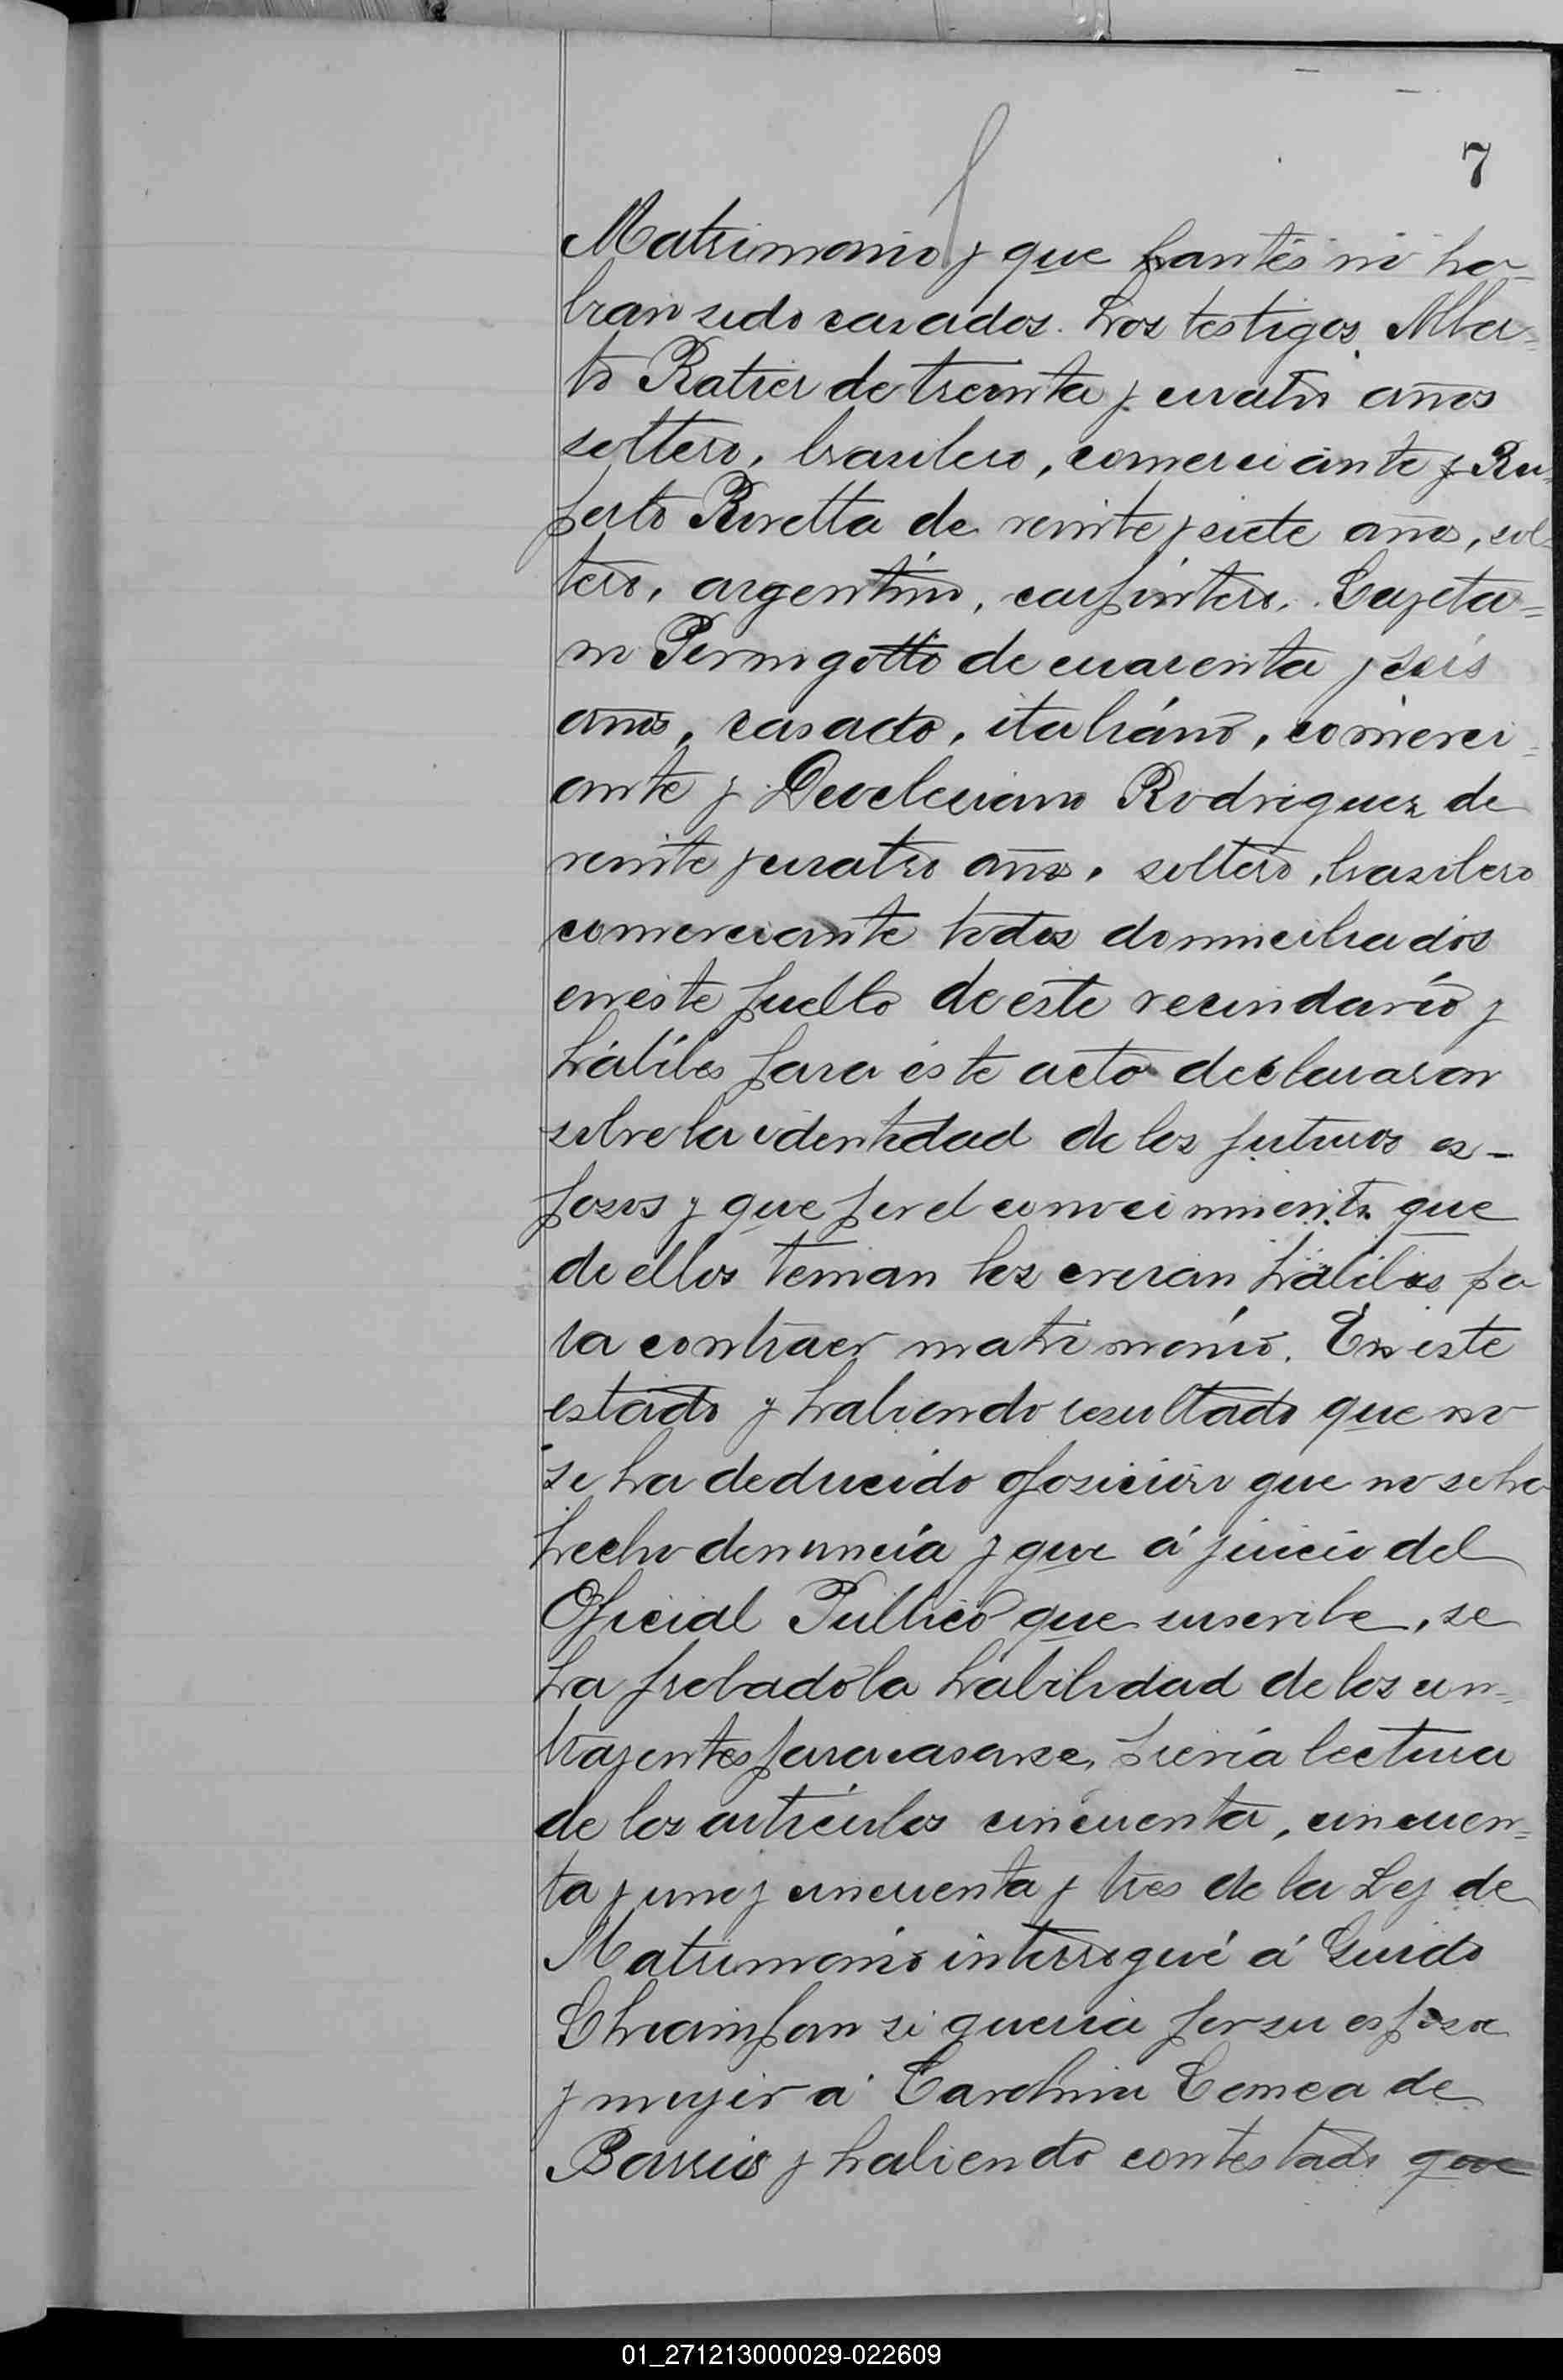 7
Matrimonio y que hantes ni ha-
bian sido casados. Los testigos Alber=
to Ratier de treinta y cuatro años
soltero, brasilero, comerciante y Ru=
perto Rovetta de veinte y siete años, sol=
tero, argentino, carpintero, Cayeta=
no Pernigotto de cuarenta y seis
años, casado, italiano, comerci=
ante y Deocleciano Rodriguez de
veinte y cuatro años, soltero, brasilero
comerciante todos domiciliados
en este pueblo de este vecindario y
hábiles para éste acto declararon
sobre la identidad de los futuros es-
posos y que por el conocimiento que
de ellos tenian los creian hábiles pa
ra contraer matrimonio. En este
estado y habiendo resultado que no
se ha deducido oposicion que no se ha
hecho denuncia y que á juicio del
Oficial Publico que suscribe, se
ha probado la habilidad de los con=
trayentes para casarse, previa lectura
de los articulos cincuenta, cincuen=
ta y uno y cincuenta y tres de la Ley de
Matrimonio interrogué á Guido
Chiampan si queria por su esposa
y mujer á Carolina Correa de
Barrios y habiendo contestado que
01_271213000029-022609